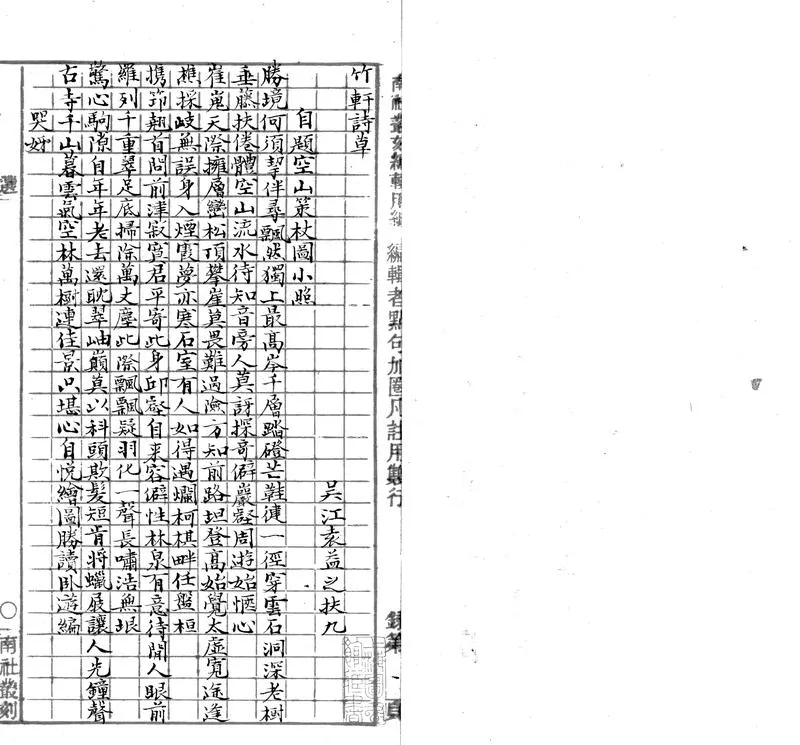 南社叢刻編輯用紙 編輯者點句加圈凡註用雙行 錄第 頁
竹軒詩草 吳江袁益之扶九
自題空山策杖圖小照
勝境何須挈伴尋飄然獨上最高岑千層踏磴芒鞋健一徑穿雲石洞深老樹
垂藤扶倦體空山流水待知音旁人莫訝探奇僻巖壑周遊始愜心
崔嵬天際擁層巒松頂攀崖莫畏難過險方知前路坦登高始覺太虛寬途逢
樵採岐無誤身入煙霞夢亦寒石室有人如得遇爛柯棋畔任盤桓
携筇翹首問前津寂寞君平寄此身邱壑自來容僻性林泉有意待閒人眼前
羅列千重翠足底掃除萬丈塵此際飄飄疑羽化一聲長嘯浩無垠
驚心駒隙自年年老去還耽翠岫巔莫以科頭欺髮短肯將蠟屐讓人先鐘聲
古寺千山暮雲氣空林萬樹連佳景只堪心自悅繪圖勝讀臥遊編
哭妤
選
〇
南社叢刻